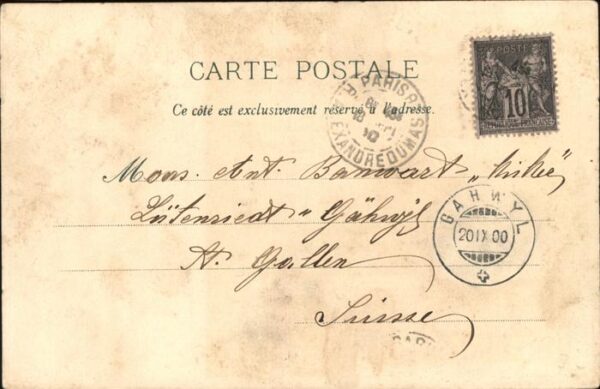 POSTE
10
CARTE POSTALE
PARIS
ALEXANDRE DUMAS
Ce côté est exclusivement réservé à l'adresse.
Mons. Ant. Bannwart
Lütenriedt "Gähwyl
St. Gallen
Suisse
GAHWYL
20 IX 00